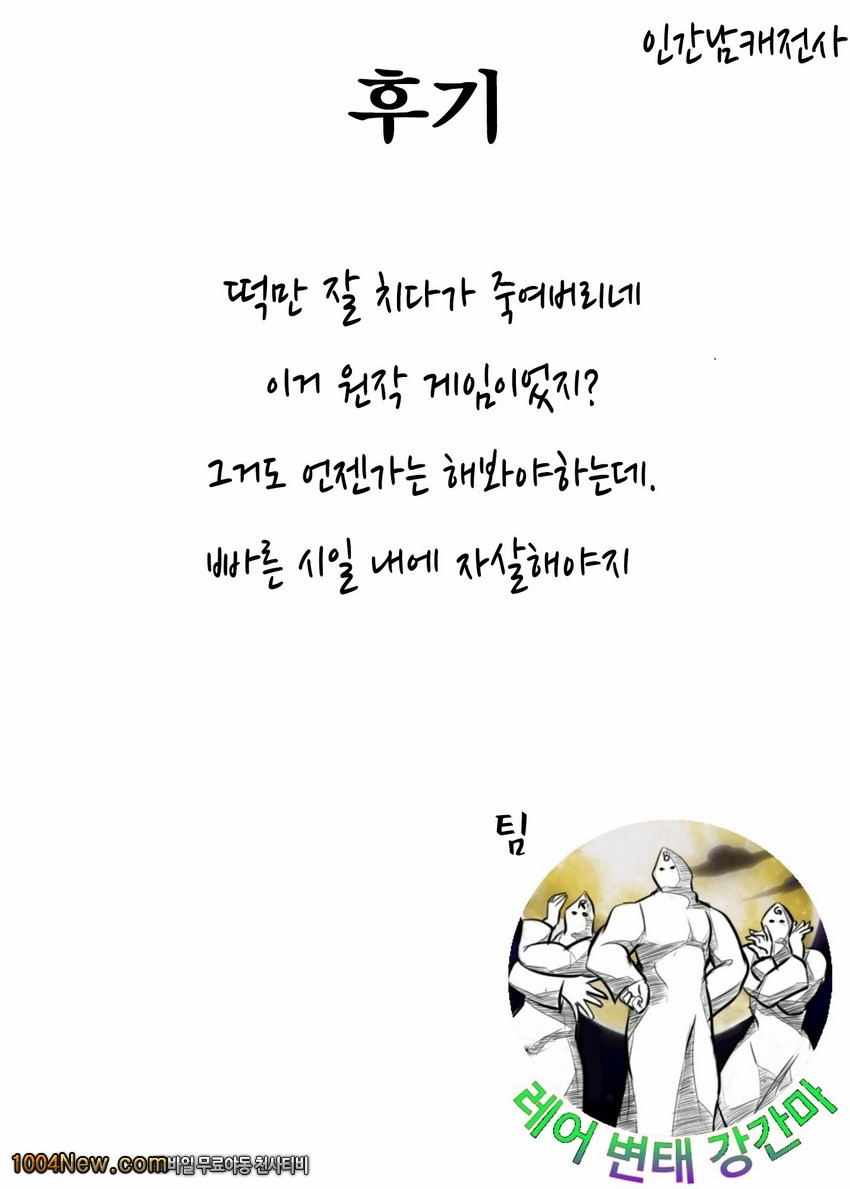 인간남캐전사
후기
떡만 잘 치다가 죽여버리네
이거 원작 게임이었지?
그거도 언젠가는 해봐야하는데.
빠른 시일 내에 자살해야지
팀
R
B
G
레어 변태 강간마
1004New.com매일 무료야동 천사티비